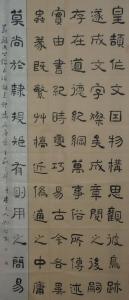 皇頡作文因物構思觀彼鳥跡
遂成文字燦矣成章閱之後嗣
實由書紀時變巧易古今各異
蟲篆既繁草藁近偽適之中庸
莫尚於隸規矩有則用之簡易